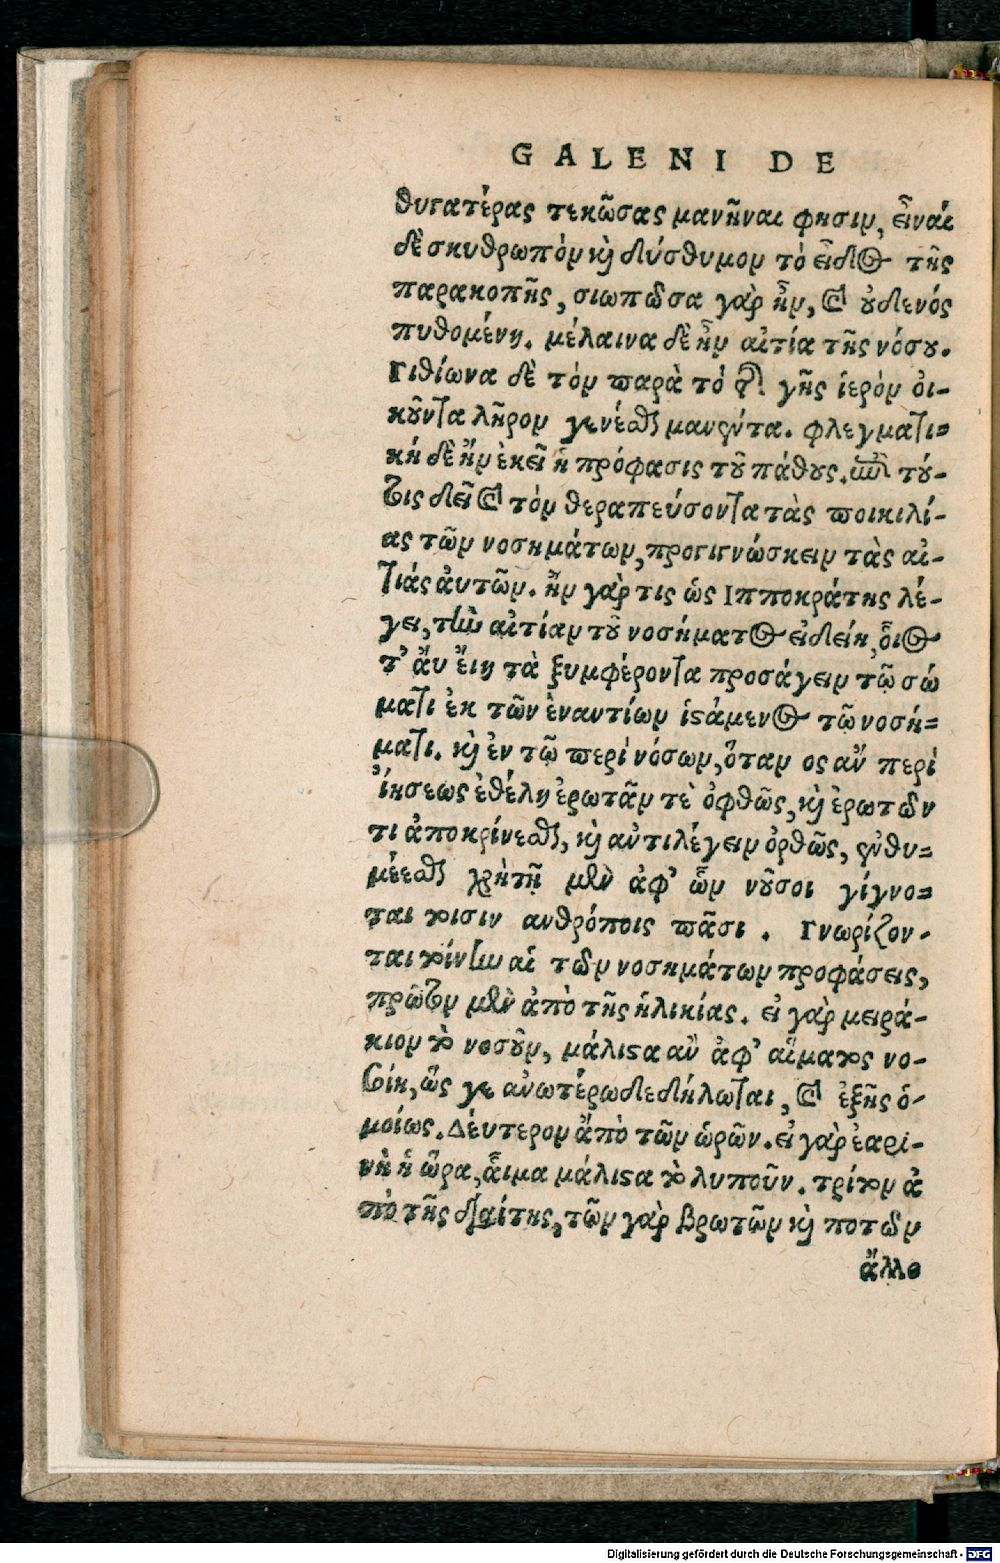 GALENI DE
θυγατέρας τεκῶσας μανῆναι φησιν, εἶναί
δὲ σκυθρωπὸν καὶ δύσθυμον τὸ εἶδος τῆς
παρακοπῆς, σιωπῶσα γὰρ ἦν, καὶ οὐδενός
πυθομένη. μέλαινα δὲ ἦν αἰτία τῆς νόσου.
Γιθίωνα δὲ τὸν παρὰ τὸ τῆς γῆς ἱερὸν οἰ-
κοῦντα λῆρον γενέσθαι μανέντα. φλεγματι-
κή δὲ ἦν ἐκεῖ ἡ πρόφασις τοῦ πάθους. τού-
τοις δεῖ καὶ τὸν θεραπεύσοντα τὰς ποικιλί-
ας τῶν νοσημάτων, προγιγνώσκειν τὰς αἰ-
τιάς ἀυτῶν. ἢν γὰρ τις ὡς Ιπποκράτης λέ-
γει, τὴν αἰτίαν τοῦ νοσήματος εἰδείη, οἷος
τ' ἂν ἔιη τὰ ξυμφέροντα προσάγειν τῷ σώ
ματι ἐκ τῶν ἐναντίων ἱστάμενος τῷ νοσή-
ματι. καὶ ἐν τῷ περὶ νόσων, ὅταν ος ἂν περὶ
ἰήσεως ἐθέλῃ ἐρωτᾶν τὲ ὀφθῶς, καὶ ἐρωτῶν
τι ἀποκρίνεσθαι, καὶ ἀντιλέγειν ὀρθῶς, ἐνθυ-
μέεσθαι χρὴ τῇ μὲν ἀφ' ὧν νοῦσοι γίγνο-
ται τοισιν ανθρόποις πᾶσι. Γνωρίζον-
ται τοίνυν αἱ τῶν νοσημάτων προφάσεις,
πρῶτον μὲν ἀπὸ τῆς ἡλικίας. εἰ γὰρ μειρά-
κιον τὸ νοσοῦν, μάλιστα ἂν ἀφ' αἵματος νο-
σοίη, ὥς γε ἀνωτέρω δεδήλωται, καὶ ἑξῆς ὁ-
μοίως. Δέυτερον ἀπὸ τῶν ὡρῶν. εἰ γὰρ ἐαρι-
νὴ ἡ ὥρα, αἷμα μάλιστα τὸ λυποῦν. τρίτον ἀ
πὸ τῆς διαίτης, τῶν γὰρ βρωτῶν καὶ ποτῶν
ἄλλο
Digitalisierung gefördert durch die Deutsche Forschungsgemeinschaft - DFG